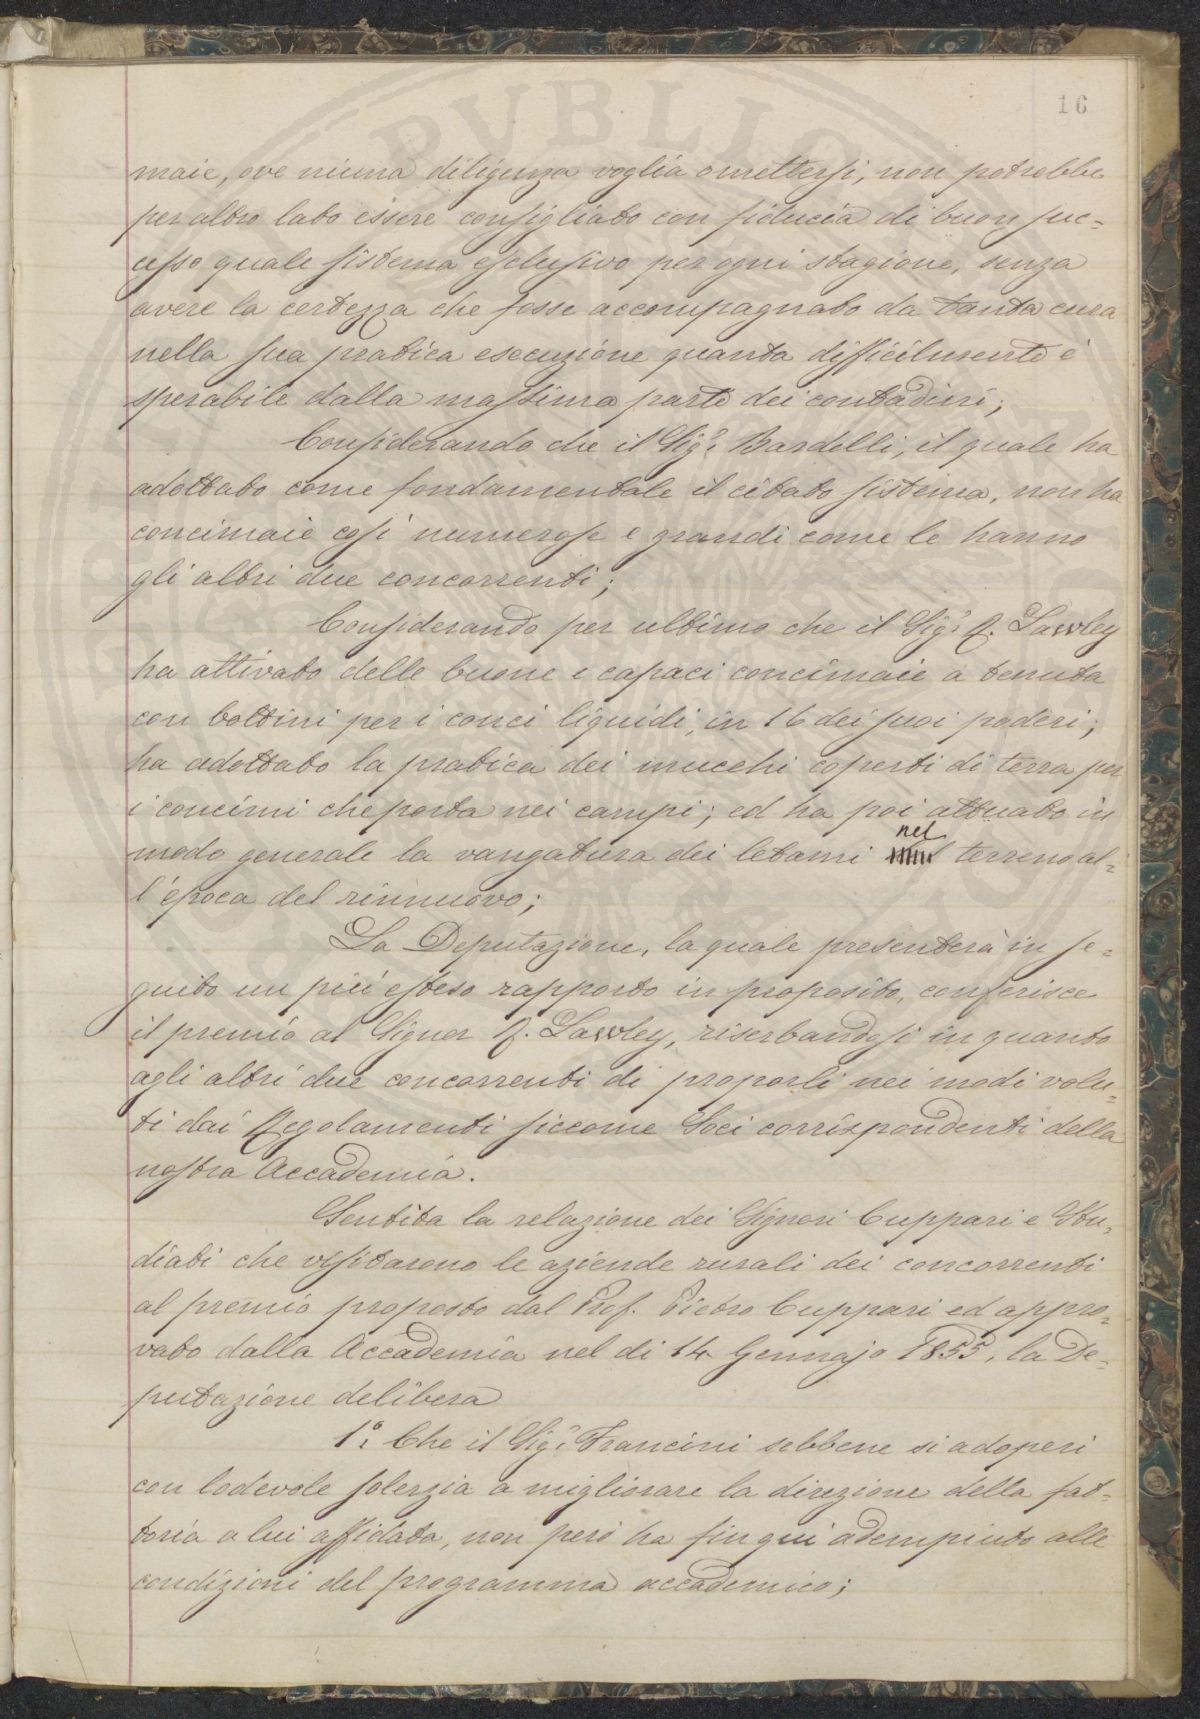 16
maie, ove niuna diligenza voglia omettersi, non potrebbe
per altro lato essere consigliato con fiducia di buon suc=
cesso quale sistema esclusivo per ogni stagione, senza
avere la certezza che fosse accompagnato da tanta cura
nella sua pratica esecuzione quanta difficilmente è
sperabile dalla massima parte dei contadini;
Considerando che il Sig.r Bardelli, il quale ha
adottato come fondamentale il citato sistema, non ha
concimaie così numerose e grandi come le hanno
gli altri due concorrenti;
Considerando per ultimo che il Sig.r R. Lawley
ha attivato delle buone e capaci concimaie a tenuta
con bottini per i conci liquidi, in 16 dei suoi poderi;
ha adottato la pratica dei mucchi coperti di terra per
i concimi che porta nei campi; ed ha poi attuato in
modo generale la vangatura dei letami nel terreno al=
l'epoca del rinnuovo;
La Deputazione, la quale presenterà in se=
guito un più esteso rapporto in proposito, conferisce
il premio al Signor R. Lawley, riserbandosi in quanto
agli altri due concorrenti di proporli nei modi volu=
ti dai Regolamenti siccome Soci corrispondenti della
nostra Accademia.
Sentita la relazione dei Signori Cuppari e Stu=
diati che visitarono le aziende rurali dei concorrenti
al premio proposto dal Prof. Pietro Cuppari ed appro=
vato dalla Accademia nel di 14 Gennajo 1855, la De=
putazione delibera
1.° Che il Sig.r Francini sebbene si adoperi
con lodevole solerzia a migliorare la direzione della fat=
toria a lui affidata, non però ha fin qui adempiuto alle
condizioni del programma accademico;